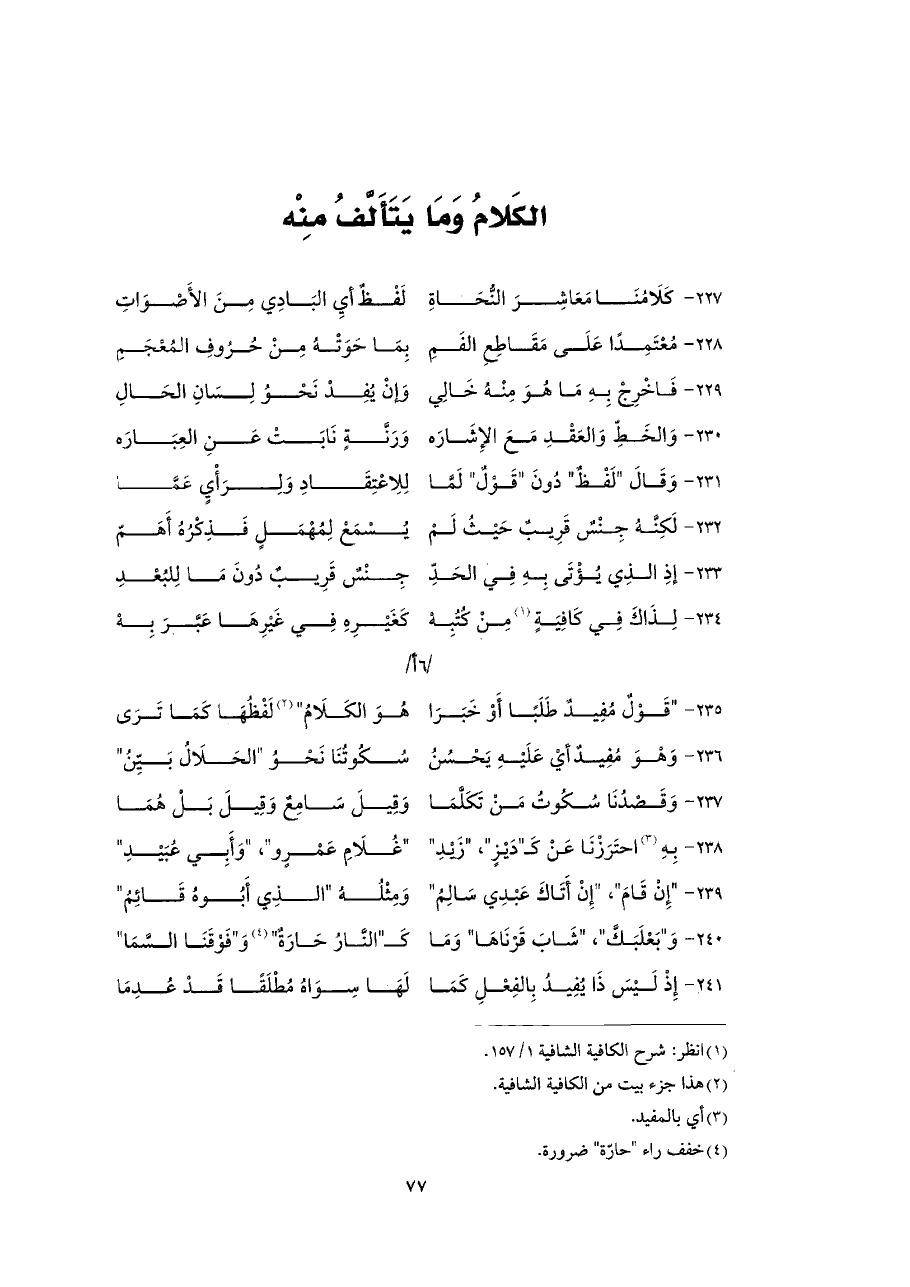 الكَلامُ وَمَا يَتَأَلَّفُ مِنْه
٢٢٧- كَلَامُنَا مَعَاشِرَ النُّحَاةِ لَفْظٌ أَيِ البَادِي مِنَ الأَصْوَاتِ
٢٢٨- مُعْتَمِدًا عَلَى مَقَاطِعِ الفَمِ بِمَا حَوَتْهُ مِنْ حُرُوفِ المُعْجَمِ
٢٢٩- فَاخْرِجْ بِهِ مَا هُوَ مِنْهُ خَالِي وَإِنْ يُفِدْ نَحْوُ لِسَانِ الحَالِ
٢٣٠- وَالخَطِّ وَالعَقْدِ مَعَ الإِشَارَه وَرَنَّةٍ نَابَتْ عَنِ العِبَارَه
٢٣١- وَقَالَ "لَفْظٌ" دُونَ "قَوْلٌ" لَمَّا لِلِاعْتِقَادِ وَلِرَأْيٍ عَمَّا
٢٣٢- لَكِنَّهُ جِنْسٌ قَرِيبٌ حَيْثُ لَمْ يُسْمَعْ لِمُهْمَلٍ فَذِكْرُهُ أَهَمّ
٢٣٣- إِذِ الذِي يُؤْتَى بِهِ فِي الحَدِّ جِنْسٌ قَرِيبٌ دُونَ مَا لِلبُعْدِ
٢٣٤- لِذَاكَ فِي كَافِيَةٍ(١) مِنْ كُتُبِهْ كَغَيْرِهِ فِي غَيْرِهَا عَبَّرَ بِهْ
/٦أ/
٢٣٥- "قَوْلٌ مُفِيدٌ طَلَبًا أَوْ خَبَرَا هُوَ الكَلَامُ"(٢) لَفْظُهَا كَمَا تَرَى
٢٣٦- وَهْوَ مُفِيدٌ أَيْ عَلَيْهِ يَحْسُنُ سُكُوتُنَا نَحْوُ "الحَلَالُ بَيِّنُ"
٢٣٧- وَقَصْدُنَا سُكُوتُ مَنْ تَكَلَّمَا وَقِيلَ سَامِعٌ وَقِيلَ بَلْ هُمَا
٢٣٨- بِهِ(٣) احتَرَزْنَا عَنْ كَـ"دَيْزٍ"، "زَيْدِ" "غُلَامِ عَمْرٍو"، "وَأَبِي عُبَيْدِ"
٢٣٩- "إِنْ قَامَ"، "إِنْ أَتَاكَ عَبْدِي سَالِمُ" وَمِثْلُهُ "الذِي أَبُوهُ قَائِمُ"
٢٤٠- وَ"بَعْلَبَكَّ"، "شَابَ قَرْنَاهَا" وَمَا كَـ"النَّارُ حَارَةٌ"(٤) وَ"فَوْقَنَا السَّمَا"
٢٤١- إِذْ لَيْسَ ذَا يُفِيدُ بِالفِعْلِ كَمَا لَهَا سِوَاهُ مُطْلَقًا قَدْ عُدِمَا
(١) انظر: شرح الكافية الشافية ١/ ١٥٧.
(٢) هذا جزء بيت من الكافية الشافية.
(٣) أي بالمفيد.
(٤) خفف راء "حارّة" ضرورة.
٧٧